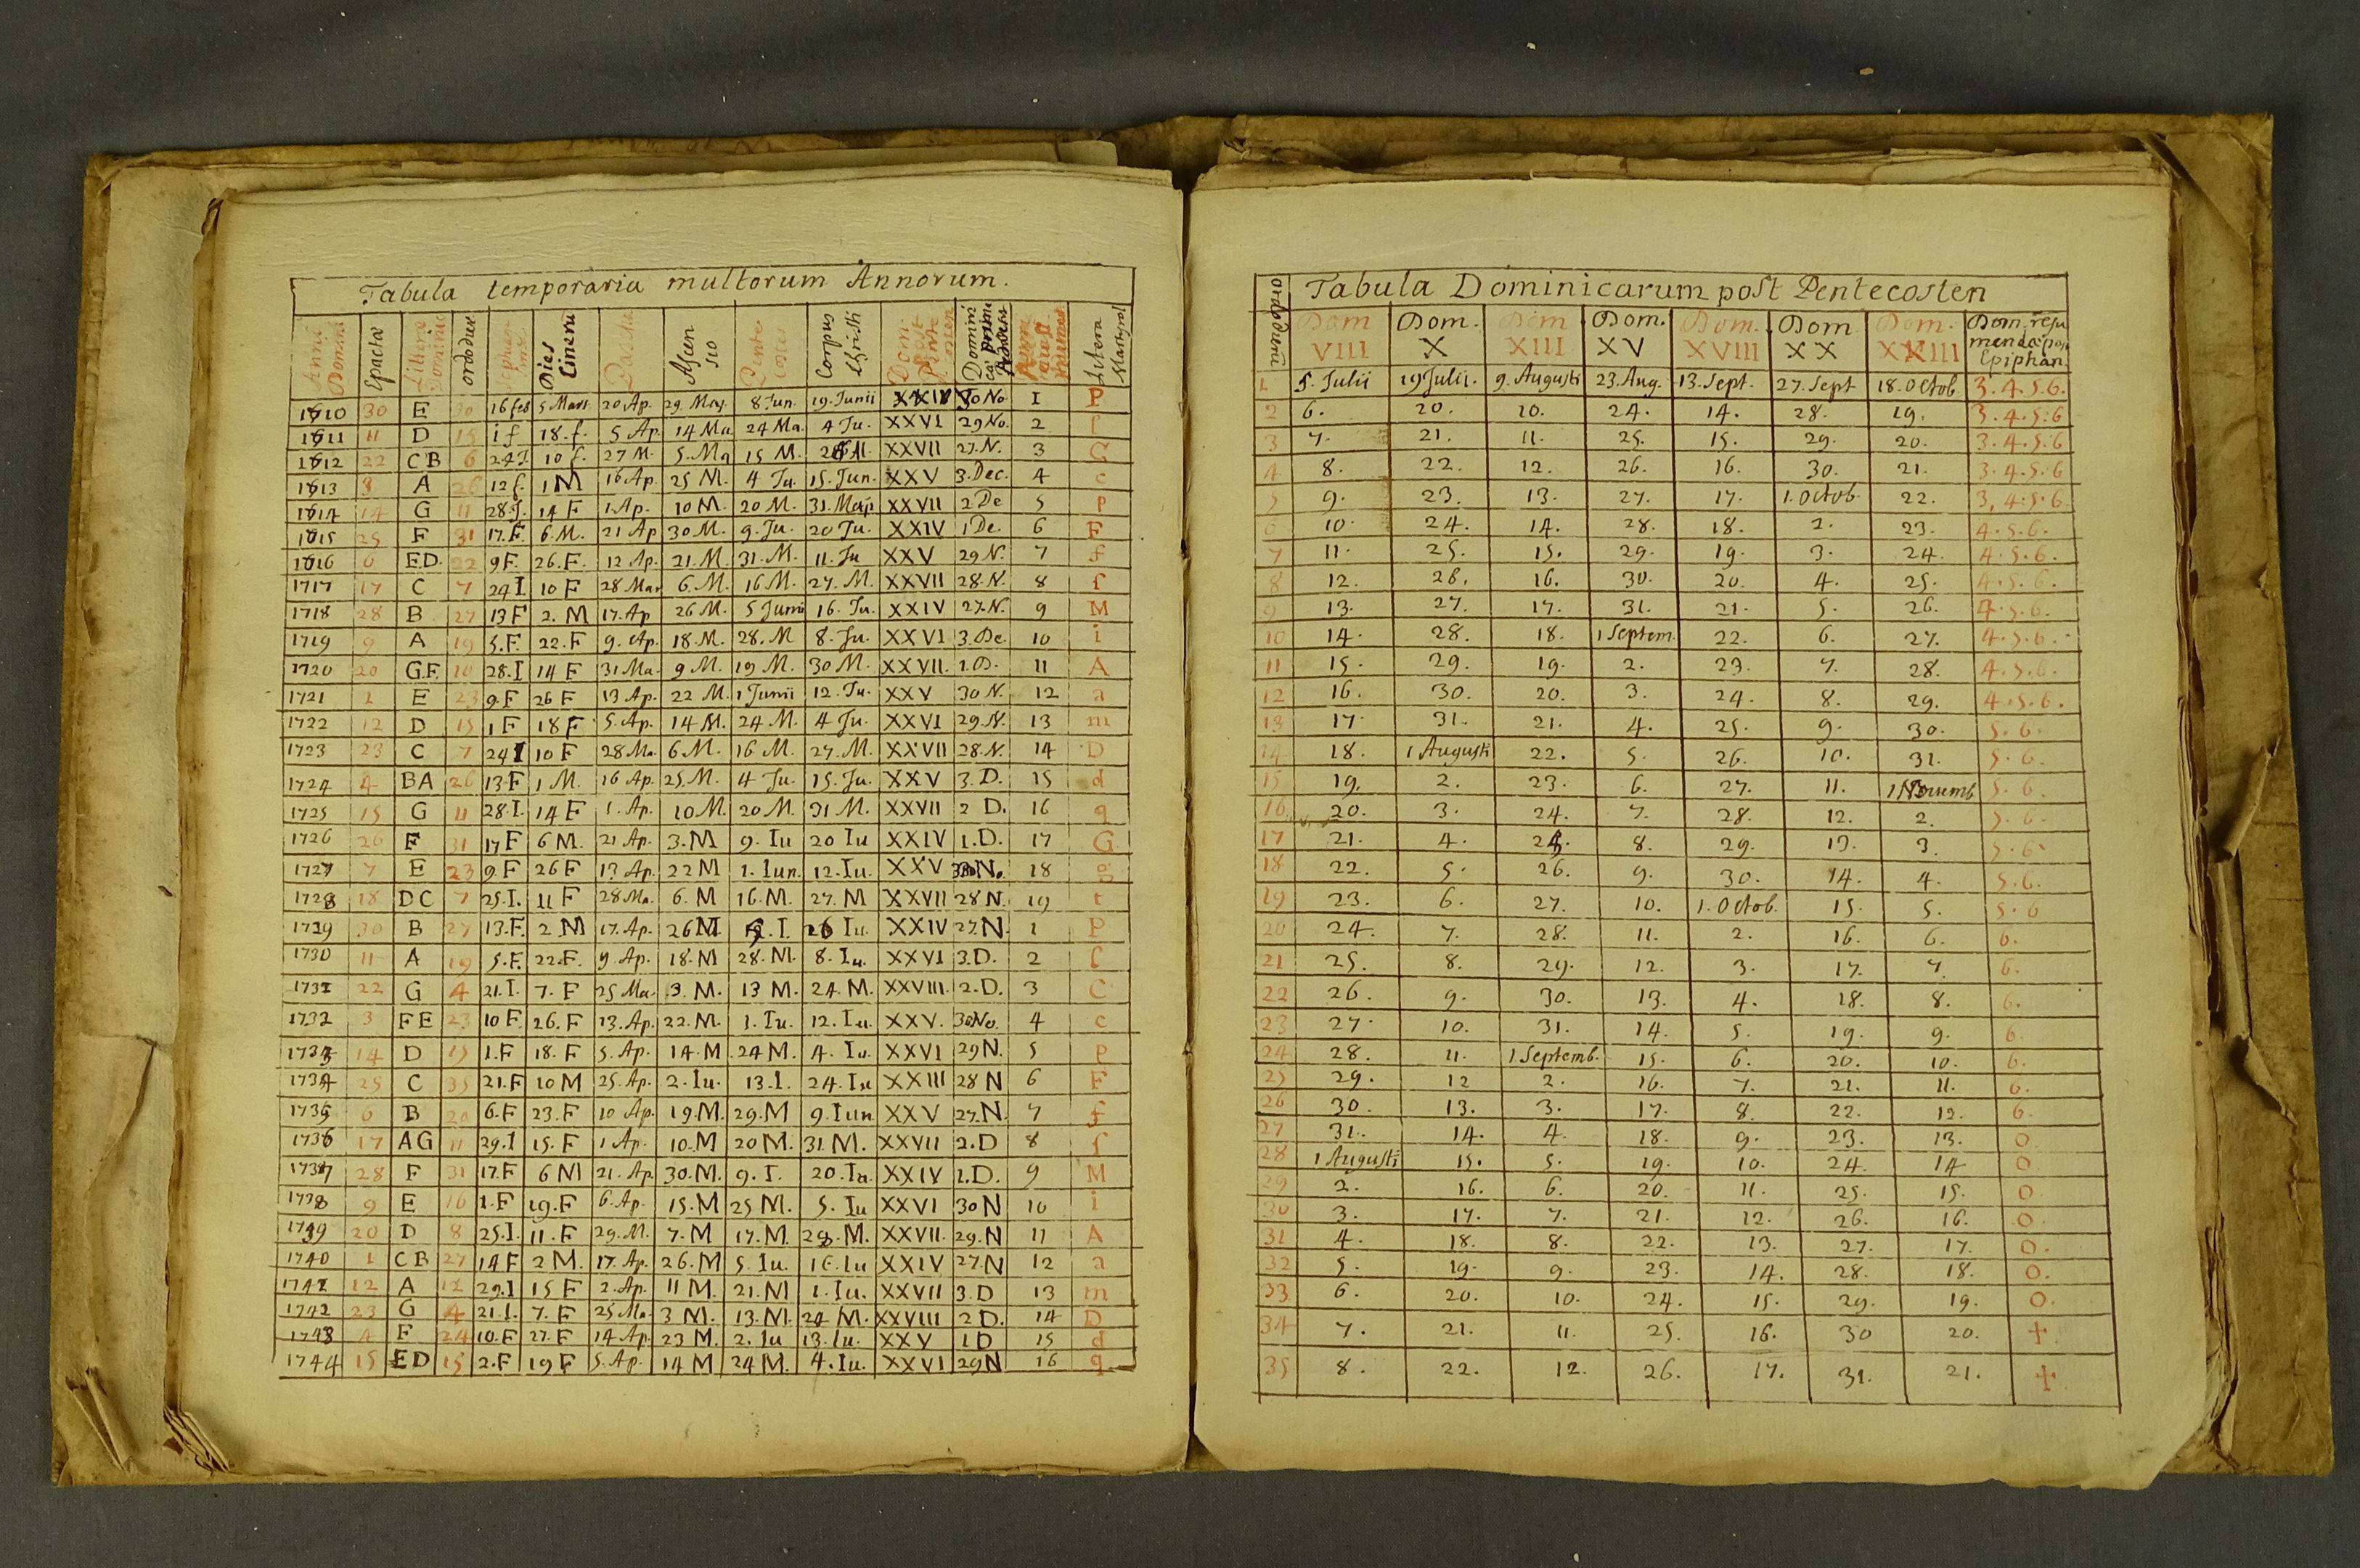 Tabula temporaria multorum Annorum.
Anni Domini Epactæ Littera Dominic ordo dier Septua Dies Cinerū Pascha Ascen sio Pente coste Corpus Christi Dom. post Pente costen Domini ca prima Adventus Numerus Litera Martyrol
1710 30 E 30 16 feb 5 Mart. 20 Ap. 29 May. 8 Jun. 19. Junii XXIV 30 No 1 P
1711 11 D 15 1 f. 18. f. 5 Ap. 14 Ma 24 Ma. 4 Ju. XXVI 29 No. 2 l
1712 22 CB 6 24 J. 10 f. 27 M. 5. Ma 15 M. 26 M. XXVII 27. N. 3 C
1713 3 A 26 12 f. 1 M 16 Ap. 25 M. 4 Ju. 15. Jun. XXV 3. Dec. 4 c
1714 14 G 11 28. J. 14 F 1 Ap. 10 M. 20 M. 31. Maji XXVII 2 De 5 p
1715 25 F 31 17. F. 6. M. 21 Ap 30 M. 9. Ju. 20 Ju. XXIV 1 De. 6 F
1716 6 ED. 22 9 F. 26. F. 12 Ap. 21. M. 31. M. 11. Ju XXV 29 N. 7 f
1717 17 C 7 24 I 10 F 28 Mar 6. M. 16 M. 27. M. XXVII 28. N. 8 ſ
1718 28 B 27 13 F 2. M 17. Ap 26 M. 5 Junii 16. Ju. XXIV 27. N. 9 M
1719 9 A 19 5. F. 22. F 9. Ap. 18. M. 28. M 8. Ju. XXVI 3. De. 10 i
1720 20 G.F. 10 28. I 14 F 31 Ma. 9 M. 19 M. 30 M. XXVII. 1. D. 11 A
1721 1 E 23 9. F 26 F 13 Ap. 22 M. 1 Junii 12. Ju. XXV 30 N. 12 a
1722 12 D 15 1 F 18 F 5. Ap. 14 M. 24 M. 4 Ju. XXVI 29. N. 13 m
1723 23 C 7 24 I 10 F 28 Ma. 6 M. 16 M. 27. M. XXVII 28. N. 14 D
1724 4 BA 26 13. F 1 M. 16 Ap. 25. M. 4 Ju. 15. Ju. XXV 3. D. 15 d
1725 15 G 11 28. I. 14 F 1. Ap. 10 M. 20 M. 31 M. XXVII 2 D. 16 q
1726 26 F 31 17 F 6 M. 21 Ap. 3. M 9. Iu 20 Iu XXIV 1. D. 17 G
1727 7 E 23 9. F 26 F 13 Ap. 22 M 1. Iun. 12. Iu. XXV 30 No. 18 g
1728 18 DC 7 25. I. 11 F 28 Ma. 6. M 16. M. 27. M XXVII 28 N. 19 t
1729 30 B 27 13. F. 2. M 17. Ap. 26 M. 5. I. 26 Iu. XXIV 27. N. 1 P
1730 11 A 19 5. F. 22. F. 9. Ap. 18. M 28. M. 8. Iu. XXVI 3. D. 2 l
1731 22 G 4 21. I. 7. F 25 Ma. 3. M. 13 M. 24. M. XXVIII. 2. D. 3 C
1732 3 FE 23 10 F. 26. F 13. Ap. 22. M. 1. Iu. 12. Iu. XXV. 30 No. 4 c
1733 14 D 15 1. F 18. F 5. Ap. 14. M 24 M. 4. Iu. XXVI 29 N. 5 p
1734 25 C 35 21. F 10 M 25. Ap. 2. Iu. 13. I. 24. Iu XXIII 28 N 6 F
1735 6 B 20 6. F 23. F 10 Ap. 19. M. 29. M 9. Iun XXV 27. N. 7 f
1736 17 AG 11 29. I 15. F 1 Ap. 10. M 20 M. 31 M. XXVII 2. D 8 ſ
1737 28 F 31 17. F 6 M 21. Ap. 30. M. 9. I. 20. Iu. XXIV 1. D. 9 M
1738 9 E 16 1. F 19. F 6. Ap. 15. M 25 M. 5. Iu XXVI 30 N 10 i
1739 20 D 8 25. I. 11. F 29. M. 7. M 17. M. 28. M. XXVII. 29. N 11 A
1740 1 CB 27 14 F 2 M. 17. Ap. 26. M 5. Iu. 16. Iu XXIV 27. N 12 a
1741 12 A 12 29. I 15 F 2. Ap. 11 M. 21. M 1. Iu. XXVII 3. D 13 m
1742 23 G 4 21. I. 7. F 25 Ma 3 M. 13. M. 24 M. XXVIII 2 D. 14 D
1743 4 F 24 10. F 27. F 14 Ap. 23 M. 2. Iu 13. Iu. XXV 1 D 15 d
1744 15 ED 15 2. F 19 F 5. Ap. 14 M 24 M. 4. Iu. XXVI 29 N 16 q
ordo dierū Tabula Dominicarum post Pentecosten
Dom VIII Dom. X Dom XIII Dom. XV Dom. XVIII Dom XX Dom. XXIII Dom. resu mendæ post Epiphan.
1 5. Julii 19 Julii. 9. Augusti 23. Aug. 13. Sept. 27. Sept 18. Octob 3. 4. 5. 6.
2 6. 20. 10. 24. 14. 28. 19. 3. 4. 5. 6
3 7. 21. 11. 25. 15. 29. 20. 3. 4. 5. 6
4 8. 22. 12. 26. 16. 30. 21. 3. 4. 5. 6
5 9. 23. 13. 27. 17. 1. Octob. 22. 3, 4. 5. 6
6 10. 24. 14. 28. 18. 2. 23. 4. 5. 6.
7 11. 25. 15. 29. 19. 3. 24. 4. 5. 6.
8 12. 26. 16. 30. 20. 4. 25. 4. 5. 6.
9 13. 27. 17. 31. 21. 5. 26. 4. 5. 6.
10 14. 28. 18. 1 Septem. 22. 6. 27. 4. 5. 6.
11 15. 29. 19. 2. 23. 7. 28. 4. 5. 6.
12 16. 30. 20. 3. 24. 8. 29. 4. 5. 6.
13 17. 31. 21. 4. 25. 9. 30. 5. 6.
14 18. 1 Augusti 22. 5. 26. 10. 31. 5. 6.
15 19. 2. 23. 6. 27. 11. 1 Novemb 5. 6.
16 20. 3. 24. 7. 28. 12. 2. 5. 6.
17 21. 4. 25. 8. 29. 13. 3. 5. 6.
18 22. 5. 26. 9. 30. 14. 4. 5. 6.
19 23. 6. 27. 10. 1. Octob. 15. 5. 5. 6
20 24. 7. 28. 11. 2. 16. 6. 6.
21 25. 8. 29. 12. 3. 17. 7. 6.
22 26. 9. 30. 13. 4. 18. 8. 6.
23 27. 10. 31. 14. 5. 19. 9. 6.
24 28. 11. 1 Septemb. 15. 6. 20. 10. 6.
25 29. 12 2. 16. 7. 21. 11. 6.
26 30. 13. 3. 17. 8. 22. 12. 6.
27 31. 14. 4. 18. 9. 23. 13. 0
28 1 Augusti 15. 5. 19. 10. 24. 14 0
29 2. 16. 6. 20. 11. 25. 15. 0
30 3. 17. 7. 21. 12. 26. 16. 0.
31 4. 18. 8. 22. 13. 27. 17. 0.
32 5. 19. 9. 23. 14. 28. 18. 0.
33 6. 20. 10. 24. 15. 29. 19. 0.
34 7. 21. 11. 25. 16. 30 20. +
35 8. 22. 12. 26. 17. 31. 21. +